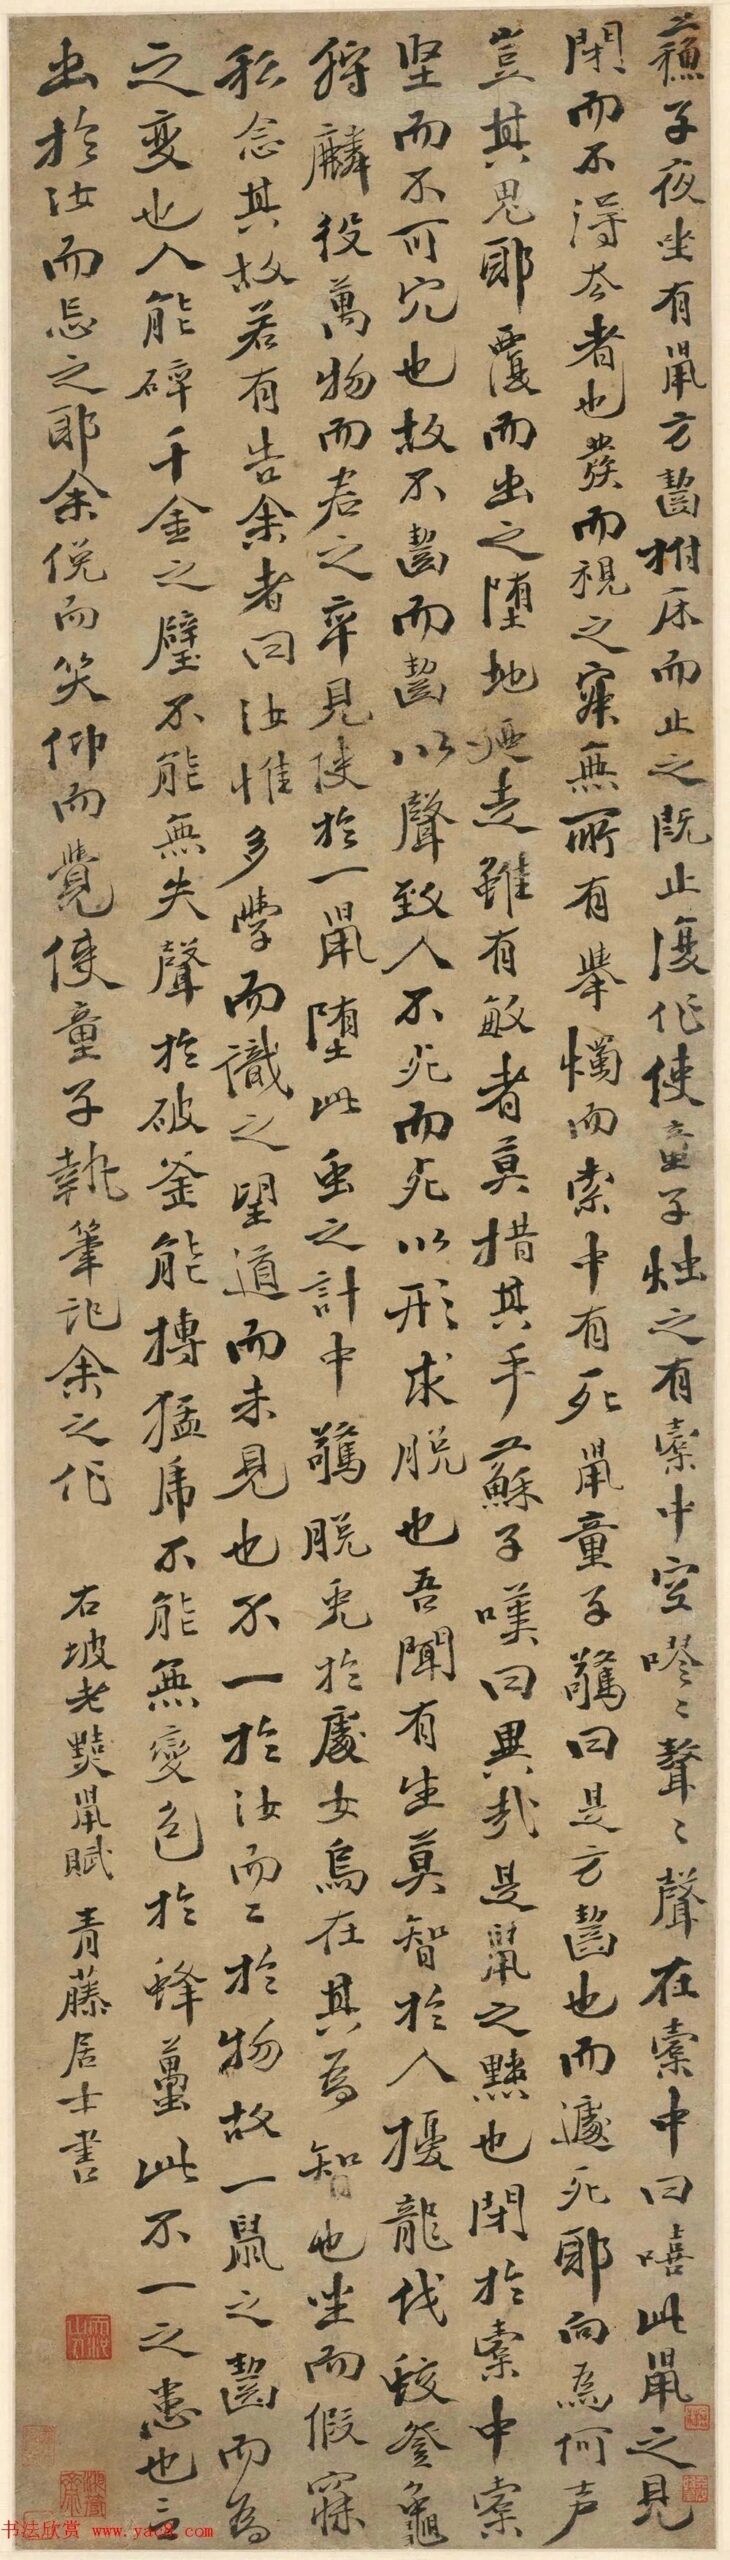 蘇子夜坐有鼠方齧拊床而止之既止復作使童子燭之有橐中空嘐〻聱〻聲在橐中曰嘻此鼠之見
閉而不得去者也發而視之寂無所有舉燭而索中有死鼠童子驚曰是方齧也而遽死耶向為何声
豈其鬼耶覆而出之墮地廼走雖有敏者莫措其手蘇子嘆曰異哉是鼠之黠也閉於橐中橐
坚而不可穴也故不齧而齧以聲致人不死而死以形求脫也吾聞有生莫智於人擾龍伐蛟登龜
狩麟役萬物而君之卒見使於一鼠墮此虫之計中驚脫兎於處女烏在其為智也坐而假寐
私念其故若有告余者曰汝惟多學而識之望道而未見也不一於汝而二於物故一鼠之齧而為
之变也人能碎千金之璧不能無失聲於破釜能搏猛虎不能無變色於蜂蠆此不一之患也言
出於汝而忘之耶余俛而笑仰而覺使童子執筆記余之作
右坡老黠鼠賦 青藤居士書
书法欣赏 www.yac8.com